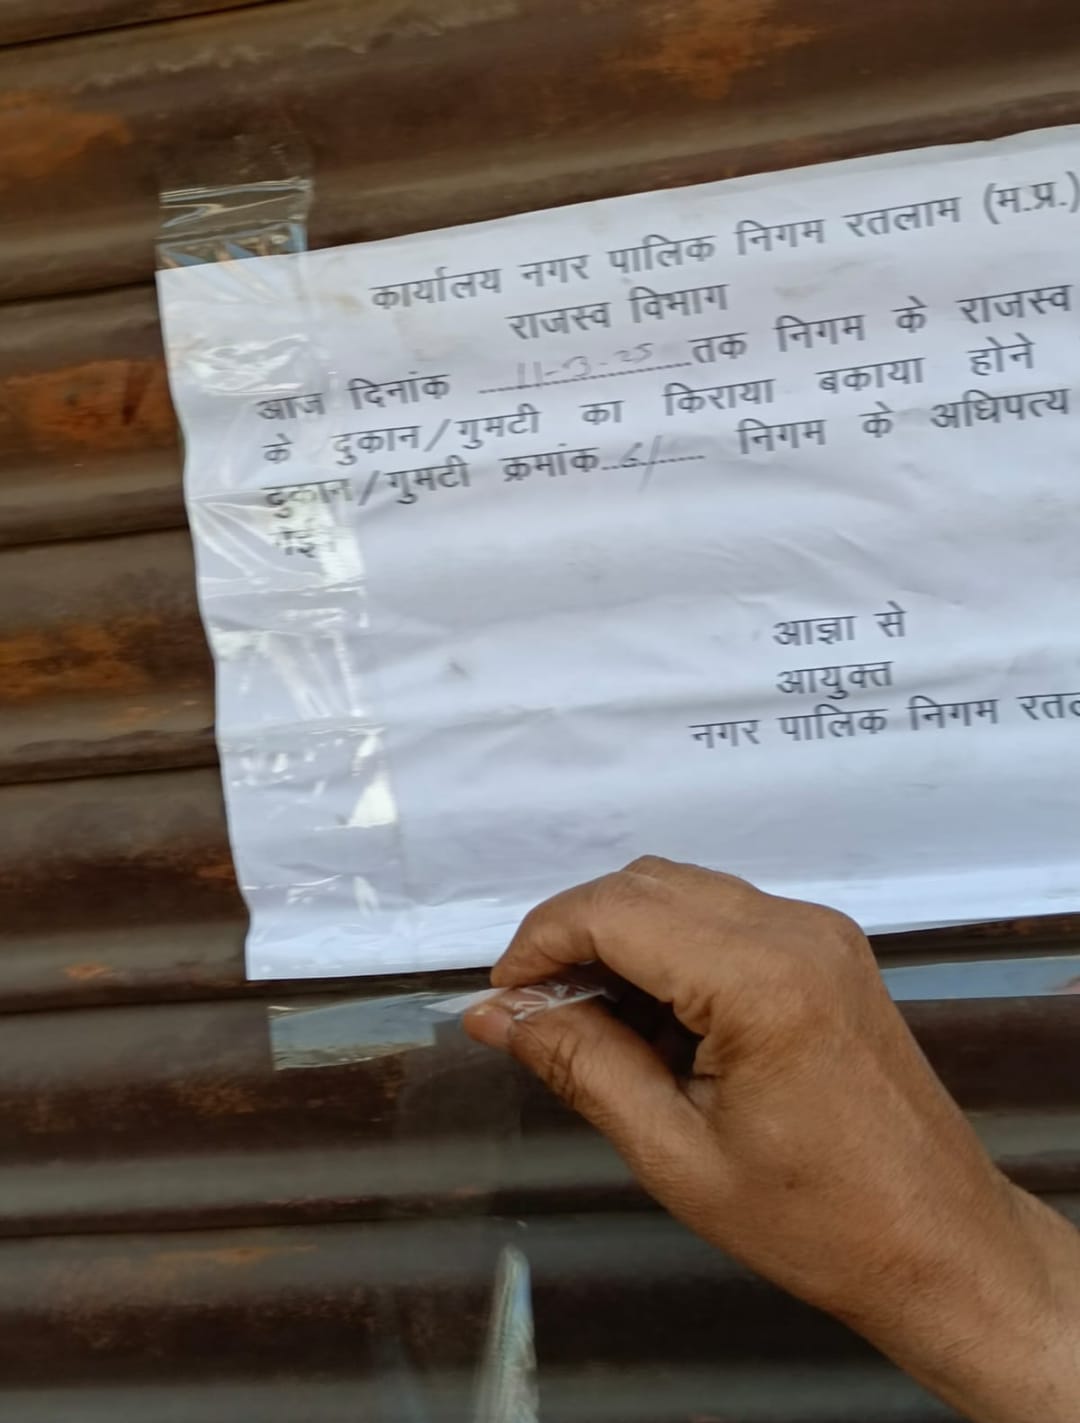 कार्यालय नगर पालिक निगम रतलाम (म.प्र.)
राजस्व विभाग
आज दिनांक 11-3-25 तक निगम के राजस्व
के दुकान/गुमटी का किराया बकाया होने
दुकान/गुमटी क्रमांक..6/...... निगम के अधिपत्य
गई।
आज्ञा से
आयुक्त
नगर पालिक निगम